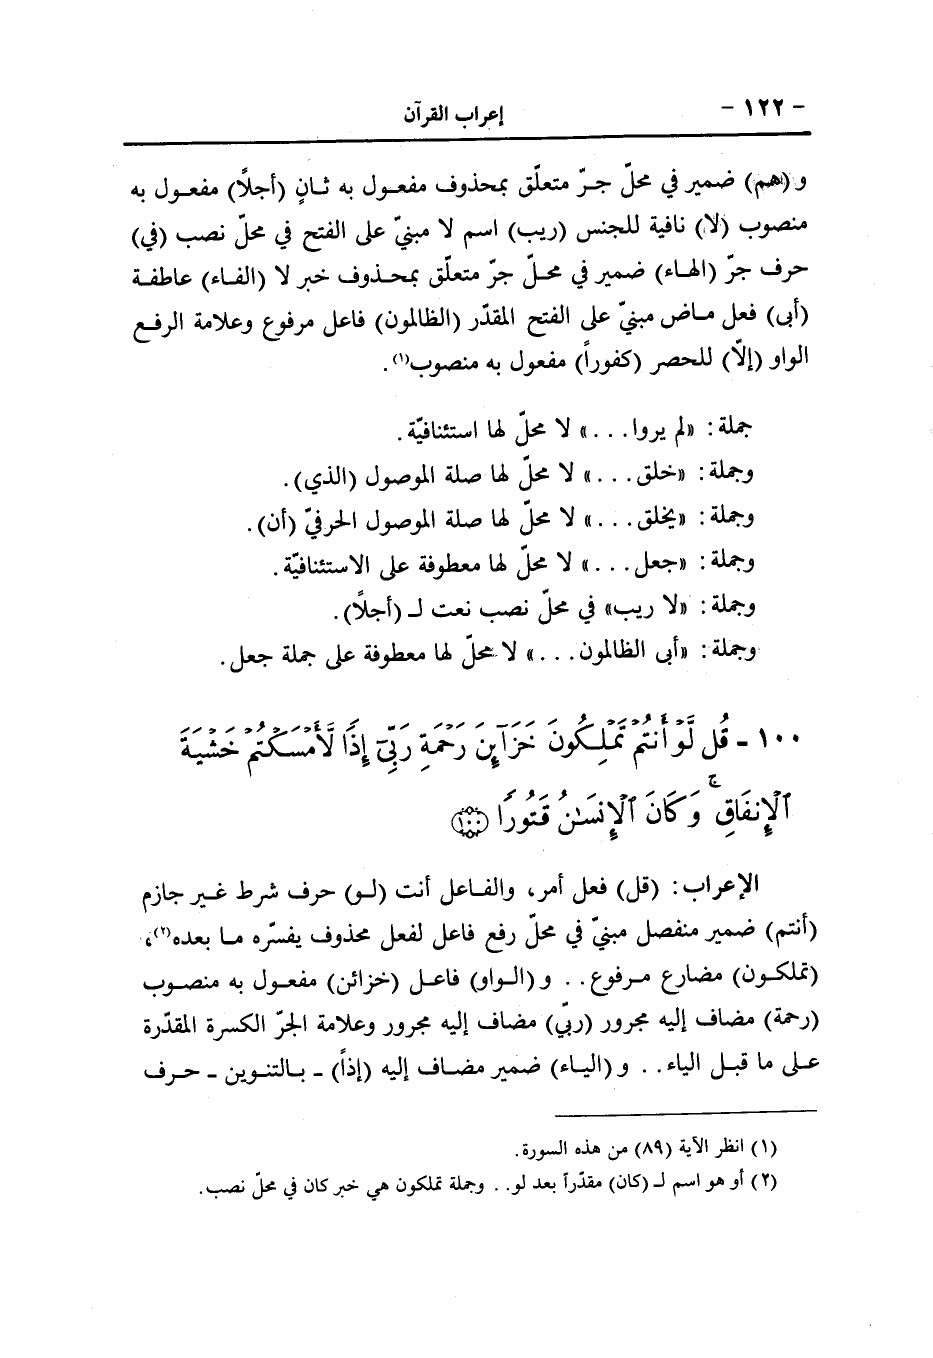 - ١٢٢ -
إعراب القرآن
و (هم) ضمير في محلّ جـرّ متعلّق بمحذوف مفعـول به ثـانٍ (أجلًا) مفعـول به
منصوب (لا) نافية للجنس (ريب) اسم لا مبنيّ على الفتح في محلّ نصب (في)
حرف جرّ (الهـاء) ضمير في محـلّ جرّ متعلّق بمحـذوف خبر لا (الفـاء) عاطفـة
(أبى) فعل مـاض مبنيّ على الفتح المقدّر (الظالمون) فاعل مرفوع وعلامة الرفـع
الواو (إلّا) للحصر (كفوراً) مفعول به منصوب(١).
جملة: «لم يروا. . .» لا محلّ لها استئنافيّة.
وجملة: «خلق. . .» لا محلّ لها صلة الموصول (الذي).
وجملة: «يخلق. . .» لا محلّ لها صلة الموصول الحرفيّ (أن).
وجملة: «جعل. . .» لا محلّ لها معطوفة على الاستئنافيّة.
وجملة: «لا ريب» في محلّ نصب نعت لـ (أجلًا).
وجملة: «أبى الظالمون. . .» لا محلّ لها معطوفة على جملة جعل.
١٠٠ - قُل لَّوْ أَنتُمْ تَمْلِكُونَ خَزَآئِنَ رَحْمَةِ رَبِّيٓ إِذًا لَّأَمْسَكْتُمْ خَشْيَةَ
ٱلْإِنفَاقِ ۚ وَكَانَ ٱلْإِنسَٰنُ قَتُورًا ﴿١٠٠﴾
الإعراب: (قل) فعل أمر، والفـاعل أنت (لـو) حرف شرط غـير جازم
(أنتم) ضمير منفصل مبنيّ في محلّ رفع فاعل لفعل محذوف يفسّره مـا بعده(٢)،
(تملكـون) مضارع مـرفوع. . و (الـواو) فاعـل (خزائن) مفعـول به منصـوب
(رحمة) مضاف إليه مجرور (ربّي) مضاف إليه مجرور وعلامة الجرّ الكسرة المقدّرة
عـلى ما قبـل الياء. . و (اليـاء) ضمير مضـاف إليه (إذاً) - بـالتنوين - حـرف
(١) انظر الآية (٨٩) من هذه السورة.
(٢) أو هو اسم لـ (كان) مقدّراً بعد لو. . وجملة تملكون هي خبر كان في محلّ نصب.